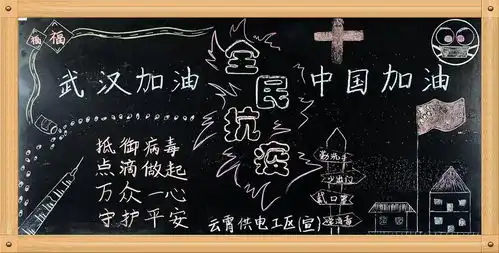 福 福
武汉加油
全民抗疫
中国加油
抵御病毒
点滴做起
万众一心
守护平安
勤洗手
少出门
戴口罩
云霄供电工区(宣)